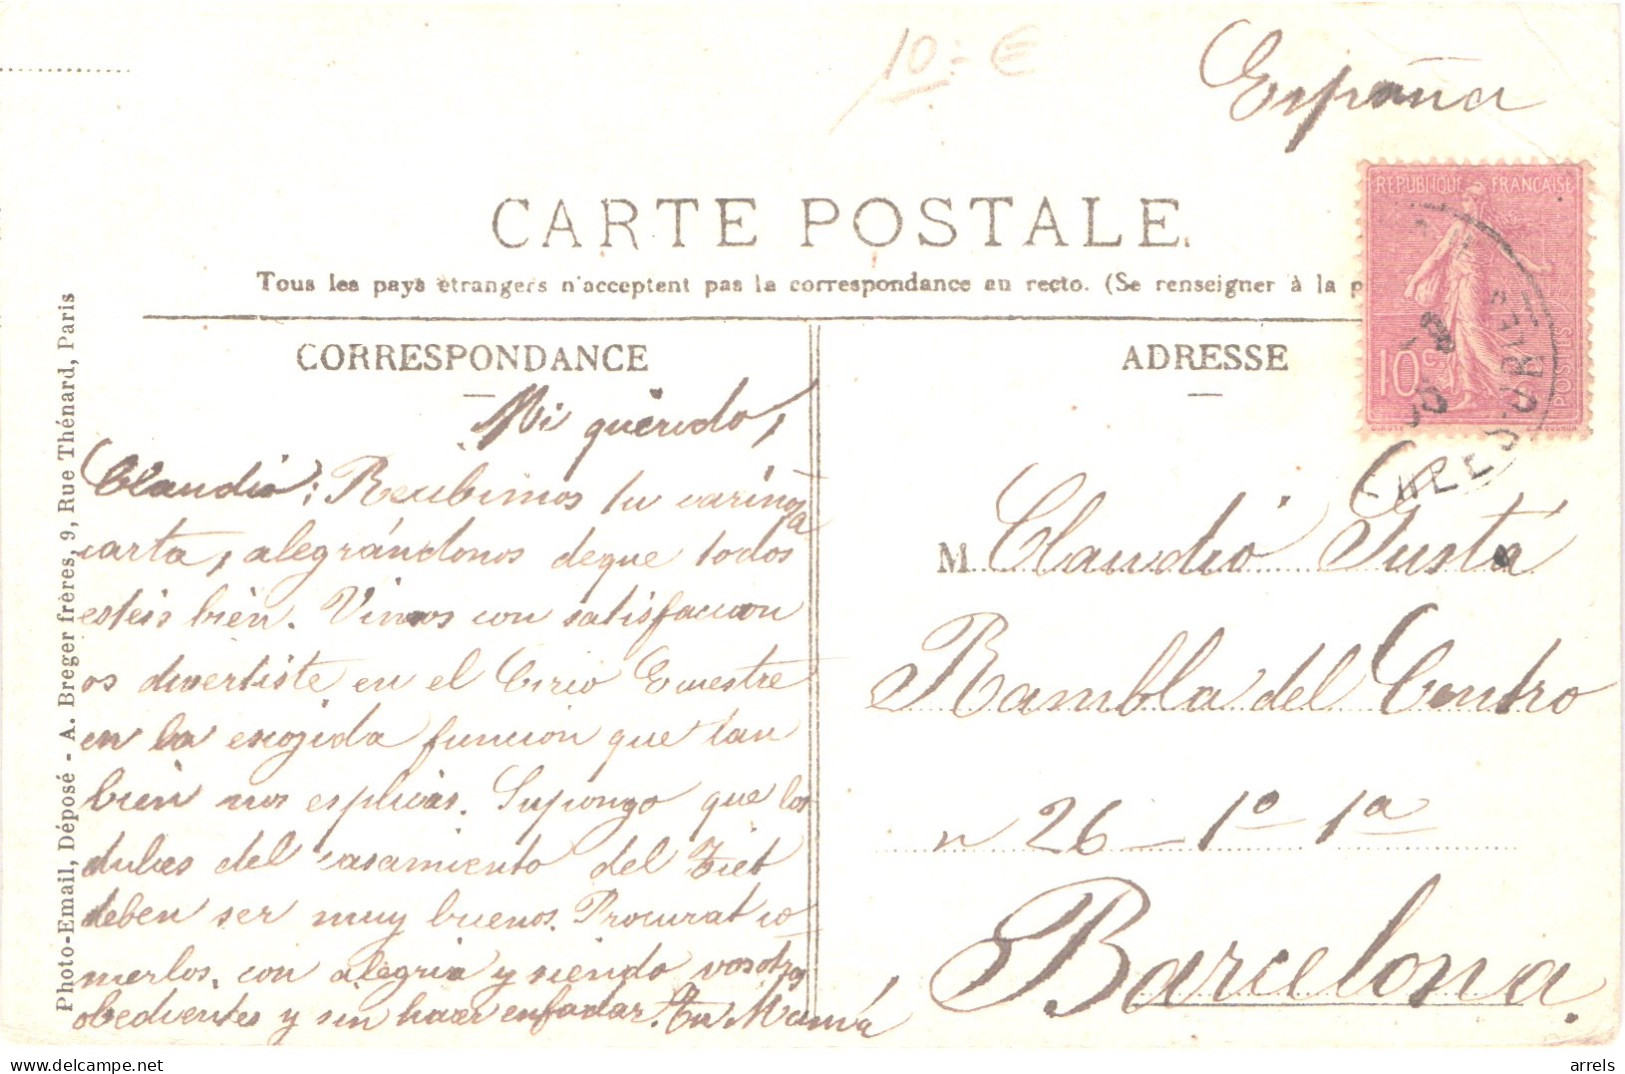 10.- €
España
CARTE POSTALE.
REPUBLIQUE FRANÇAISE
10c
POSTES
Tous les pays étrangers n'acceptent pas la correspondance au recto. (Se renseigner à la p
CORRESPONDANCE
ADRESSE
Mi querido,
Claudio: Recibimos tu cariñosa
carta, alegrándonos de que todos
esteis bien. Vimos con satisfaccion
os divertiste en el Circo Ecuestre
en la escojida funcion que tan
bien nos esplicas. Supongo que los
dulces del casamiento del
deben ser muy buenos. Procurat co
merlos, con alegria y siendo vosotros
obedientes y sin hacer enfadar. Tu Mamá
M Claudio Justá
Rambla del Centro
n 26 - 1º 1ª
Barcelona.
Photo-Email, Déposé - A. Breger frères, 9, Rue Thénard, Paris
arrels